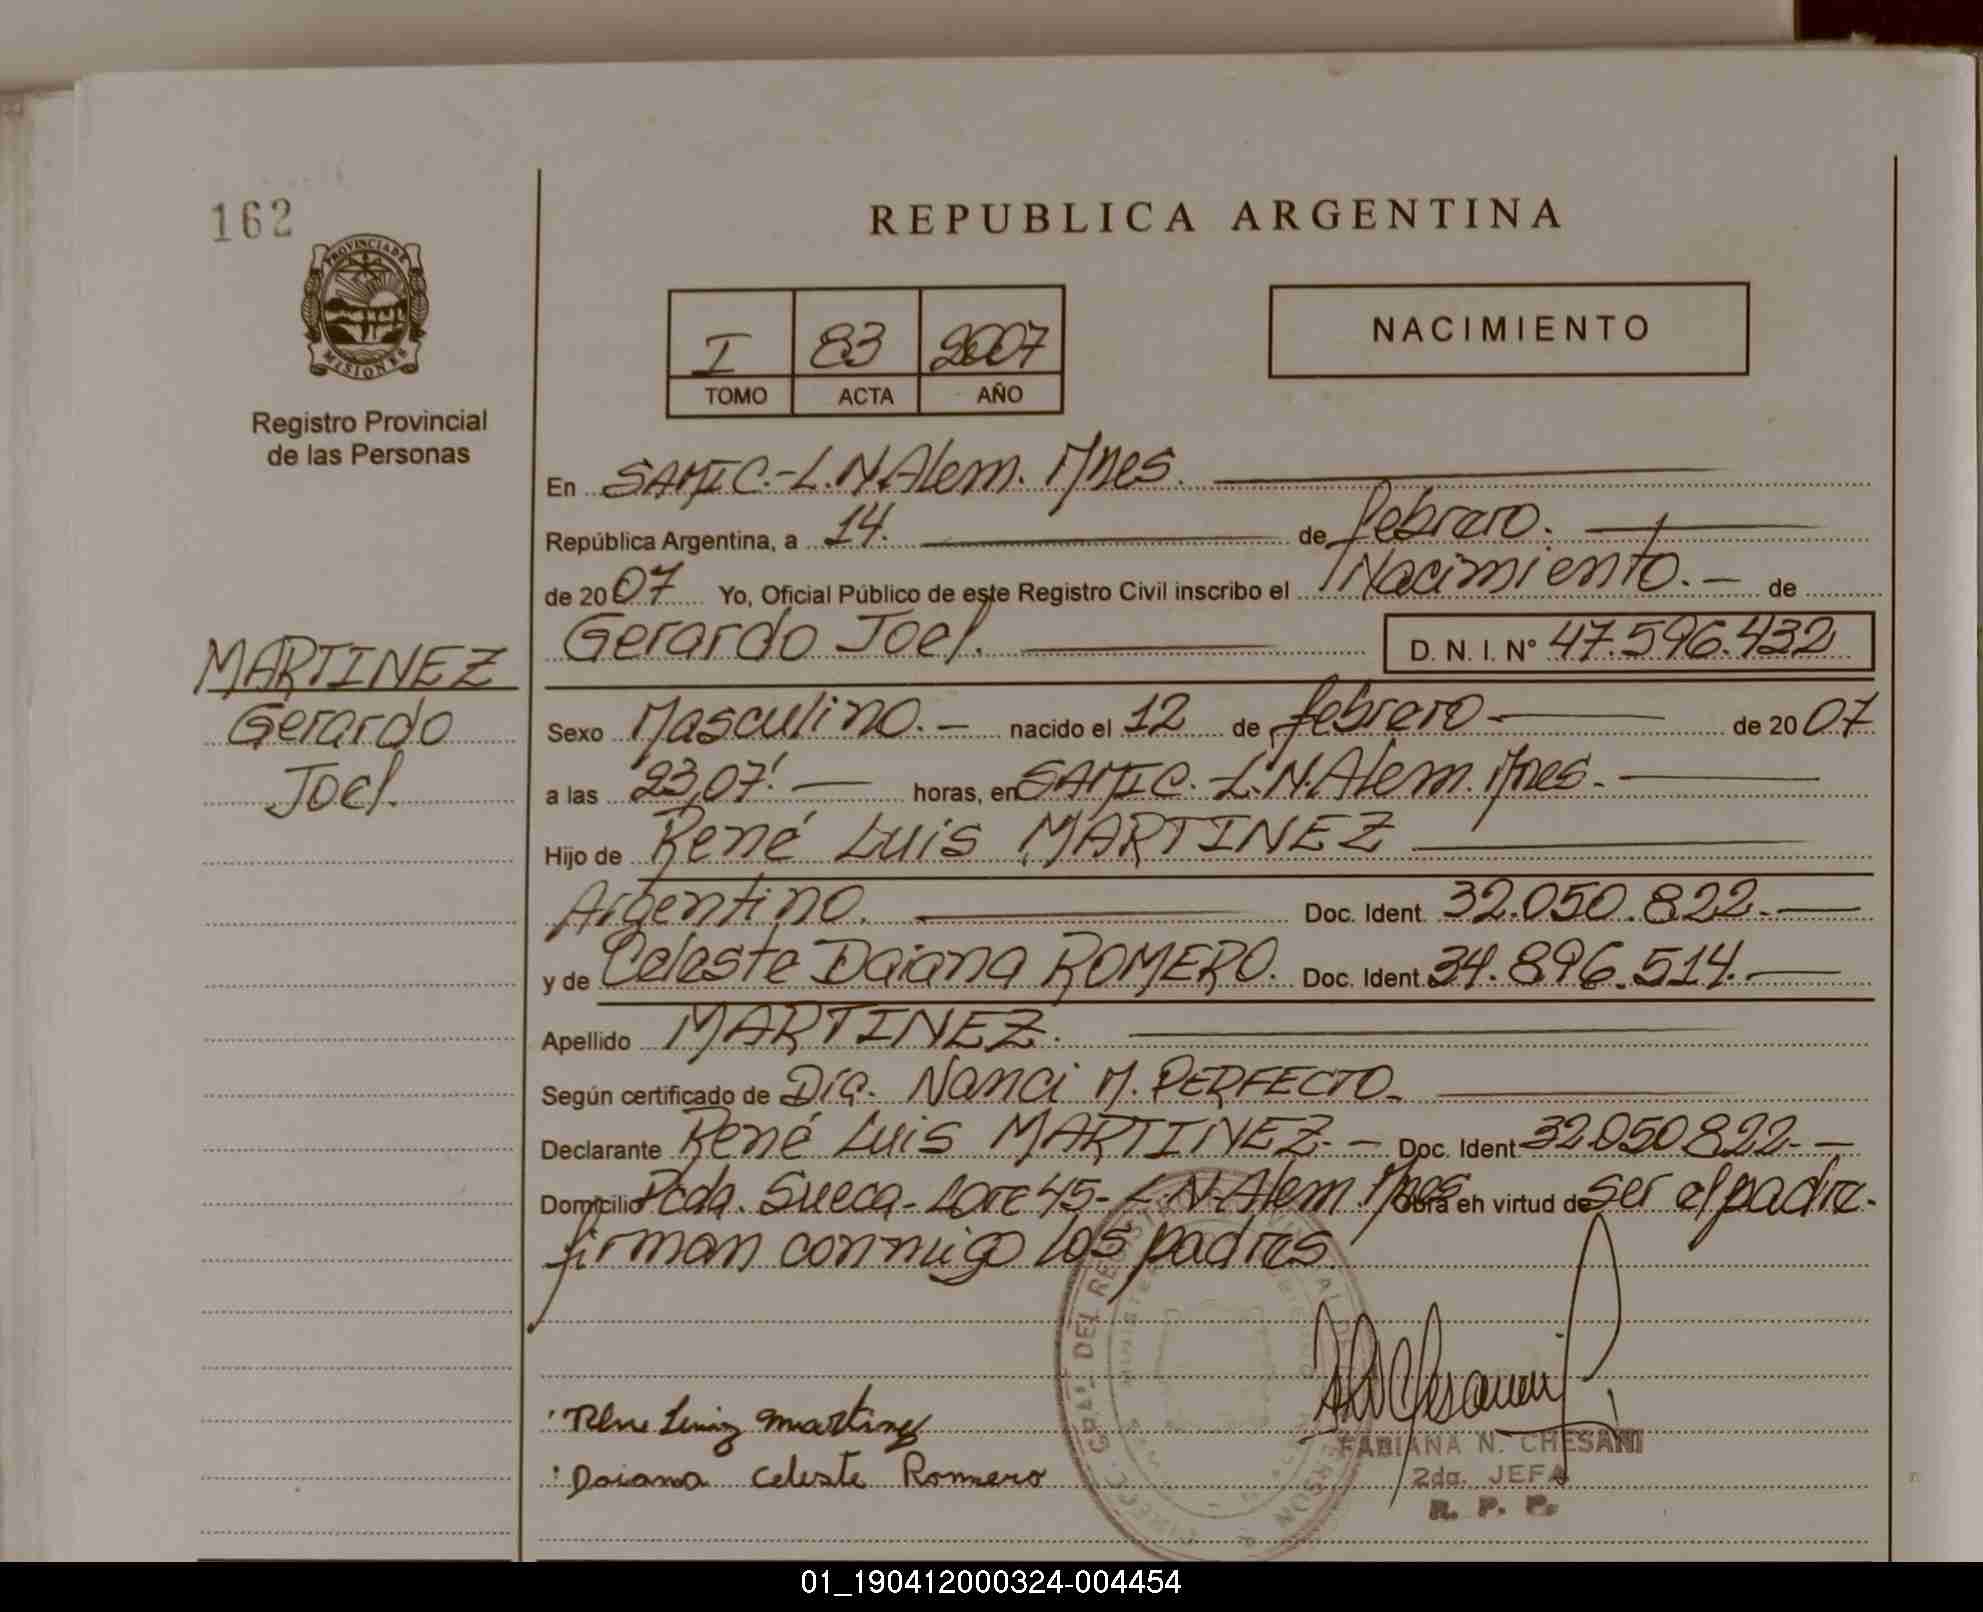 162
PROVINCIA DE
MISIONES
Registro Provincial
de las Personas
MARTINEZ
Gerardo
Joel.
REPUBLICA ARGENTINA
I 83 2007
TOMO ACTA AÑO
NACIMIENTO
En SAMIC.-L.N.Alem. Mnes.
República Argentina, a 14. de febrero.
de 2007 Yo, Oficial Público de este Registro Civil inscribo el Nacimiento. de
Gerardo Joel. D. N. I. N° 47.596.432
Sexo Masculino. nacido el 12 de febrero de 2007
a las 23,07' horas, en SAMIC.-L.N.Alem. Mnes.
Hijo de René Luis MARTINEZ
Argentino. Doc. Ident 32.050.822.
y de Celeste Daiana ROMERO. Doc. Ident. 34.896.514.
Apellido MARTINEZ.
Según certificado de Nanci M. PERFECTO.
Declarante René Luis MARTINEZ. Doc. Ident 32050822.
Domicilio Pcda. Sueca- Lote 45- L.N.Alem. Mnes Obra en virtud de ser el padre.
firman conmigo los padres.
Rene Luis Martinez
Daiana Celeste Romero
FABIANA N. CHESANI
2da. JEFA
R. P. P.
01_190412000324-004454